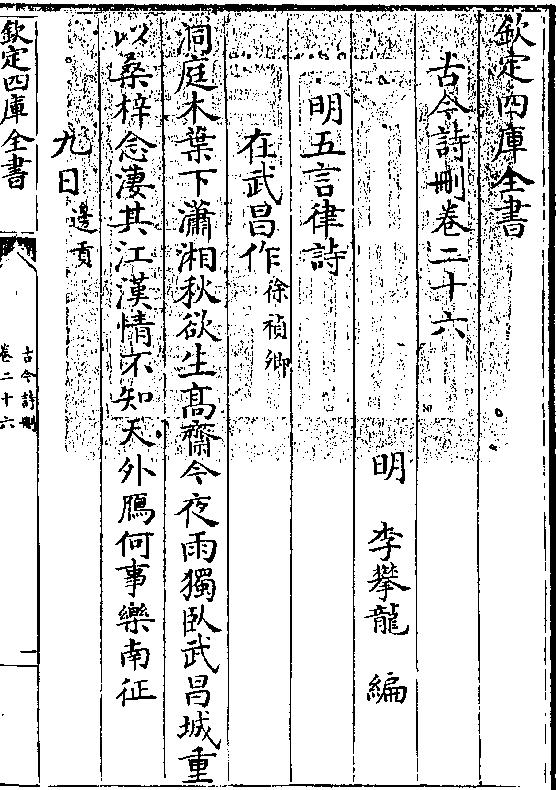 欽定四庫全書
古今詩刪卷二十六
明 李攀龍 編
明五言律詩
在武昌作 徐禎卿
洞庭木葉下瀟湘秋欲生髙齋今夜雨獨臥武昌城重
以桑梓念淒其江漢情不知天外鴈何事樂南征
九日 邊貢
欽定四庫全書
古今詩刪
卷二十六
一